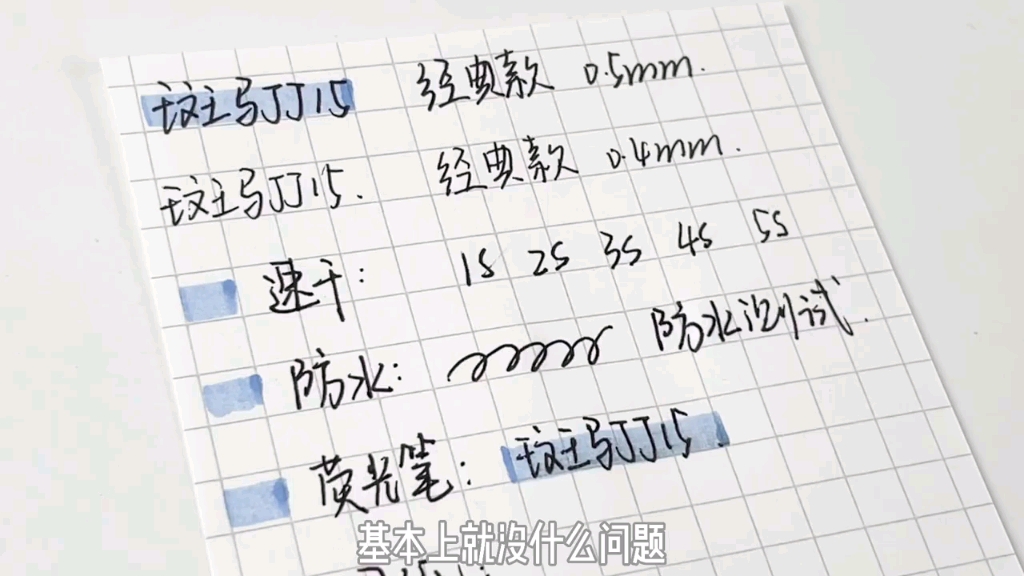 斑马JJ15 经典款 0.5mm.
斑马JJ15. 经典款 0.4mm.
速干: 1S 2S 3S 4S 5S
防水: 防水测试.
荧光笔: 斑马JJ15.
基本上就没什么问题